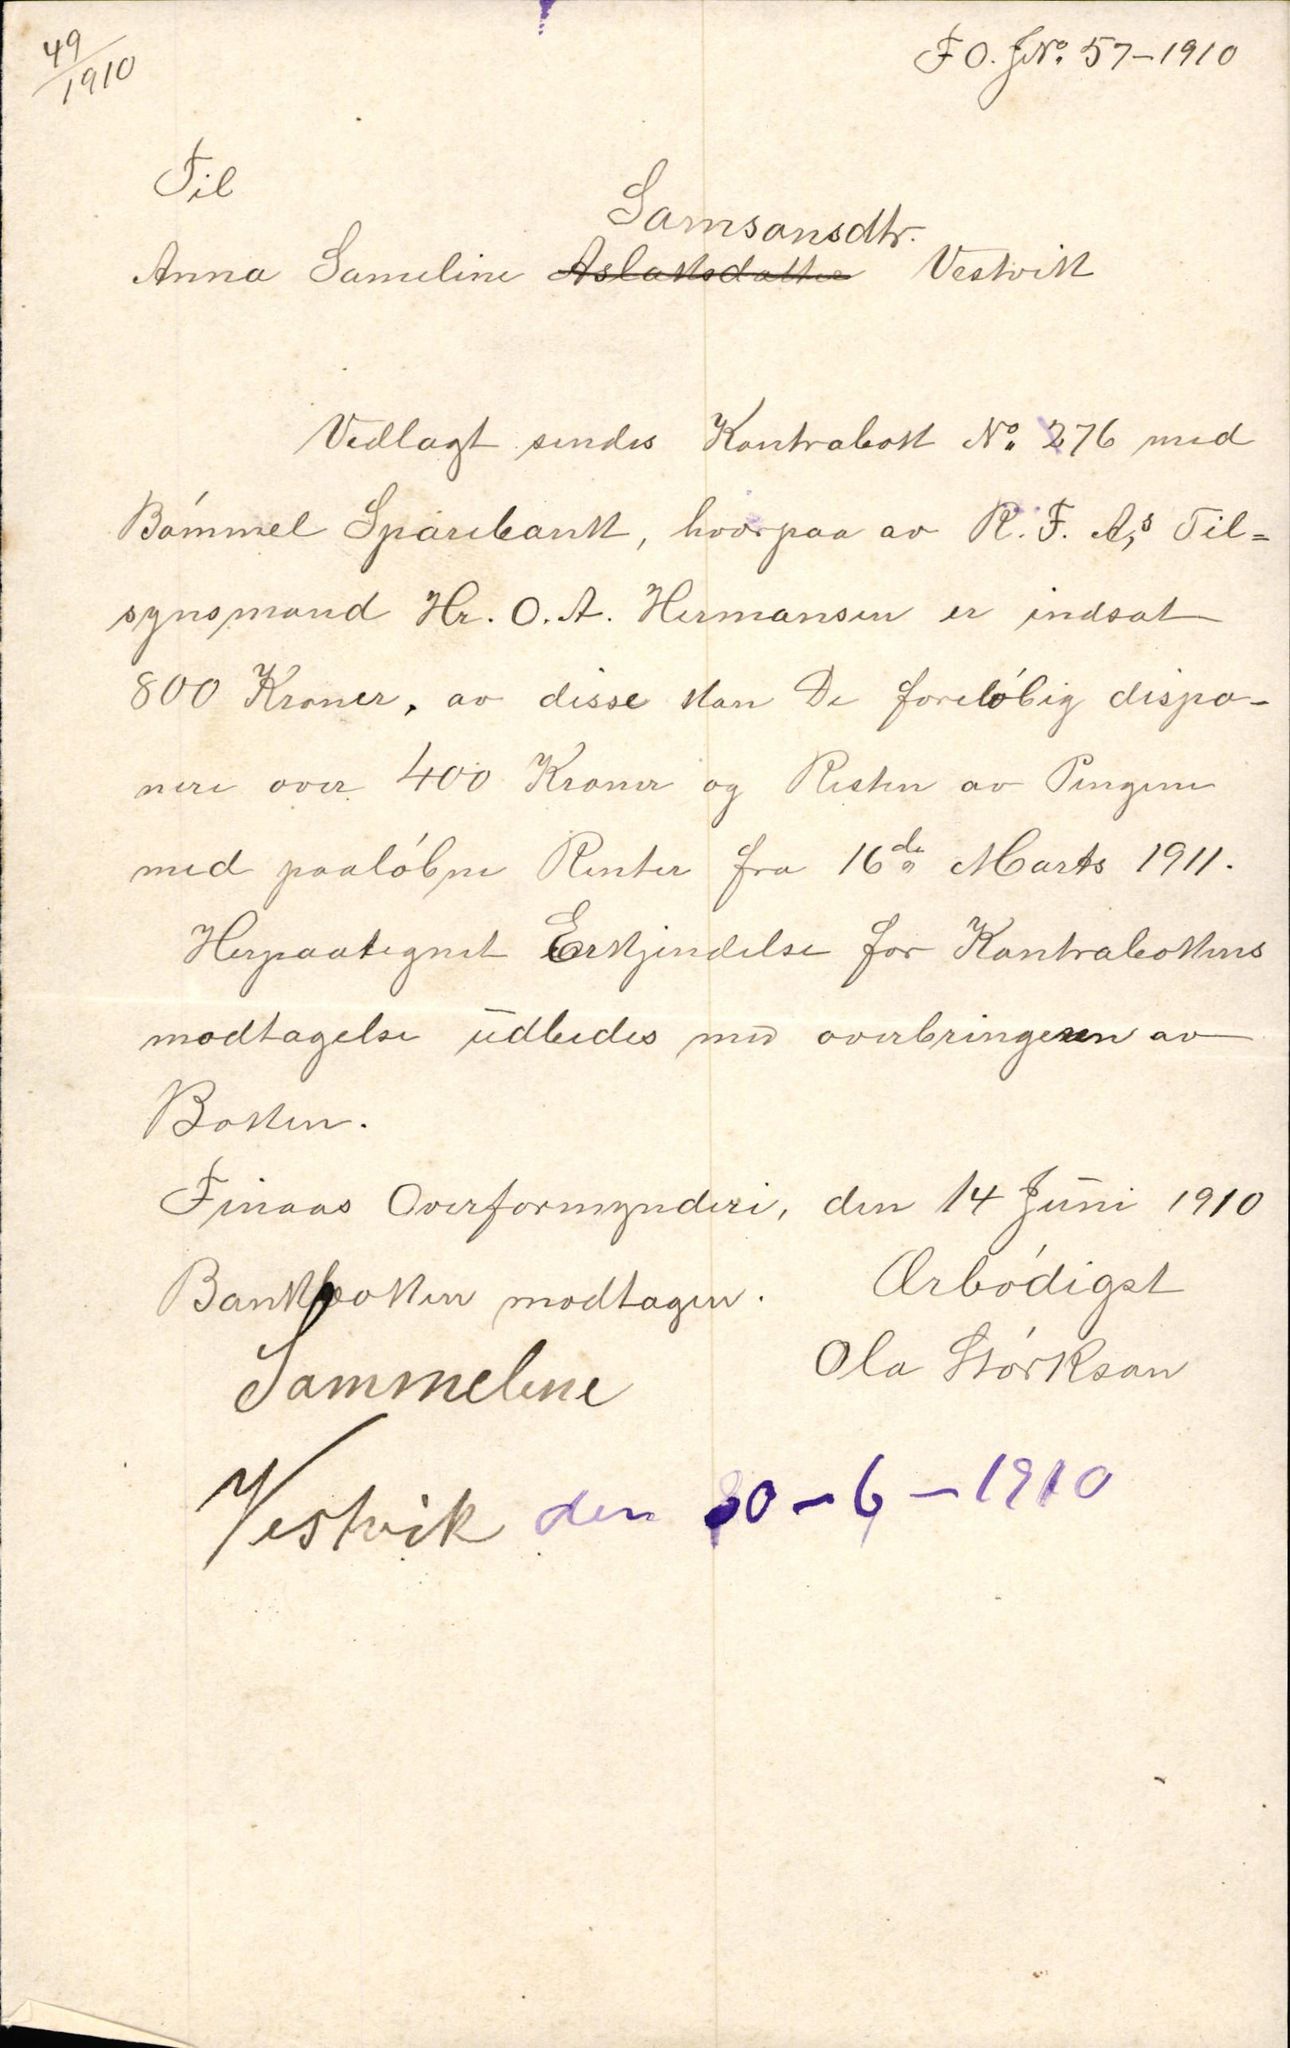 49/1910
F O. J№. 57-1910
Til
Samsonsdtr.
Anna Sameline Aslaksdatter Vestvik
Vedlagt sendes Kontrabok №. 276 med
Bömmel Sparebank, hvorpaa av R. F. A,s Til=
synsmand Hr. O. A. Hermansen er indsat
800 Kroner, av disse kan De forelöbig dispo-
nere over 400 Kroner og Resten av Pengene
med paalöbne Renter fra 16de Marts 1911.
Herpaategnet Erkjendelse for Kontrabokens
modtagelse udbedes med overbringeren av
Boken.
Finaas Overformynderi, den 14 Juni 1910
Bankboken modtagen.
Ærbödigst
Ola Störkson
Sammeline
Vestvik den 30-6-1910